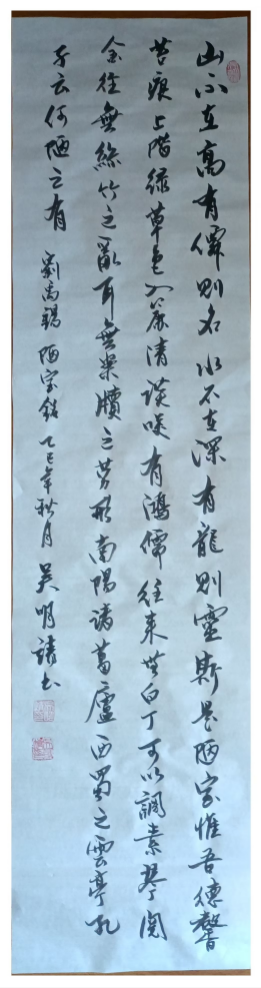 山不在高有僊則名水不在深有龍則靈斯是陋室惟吾德馨
苔痕上階緑草色入簾清談咲有鴻儒往来無白丁可以調素琴閲
金经無絲竹之亂耳無案牘之劳形南陽諸葛廬西蜀之雲亭孔
子云何陋之有 劉禹錫陋室銘 乙巳年秋月 吴明书